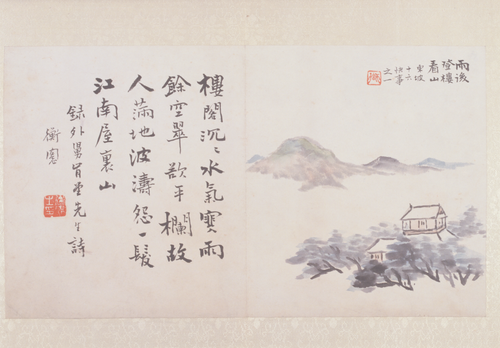 雨後
登樓
看山
東坡
十六
快事
之一
樓閣沉〻水氣寒雨
餘空翠欲平欄故
人滿地波濤怨一髮
江南屋裏山
録外舅肖堂先生詩
衡